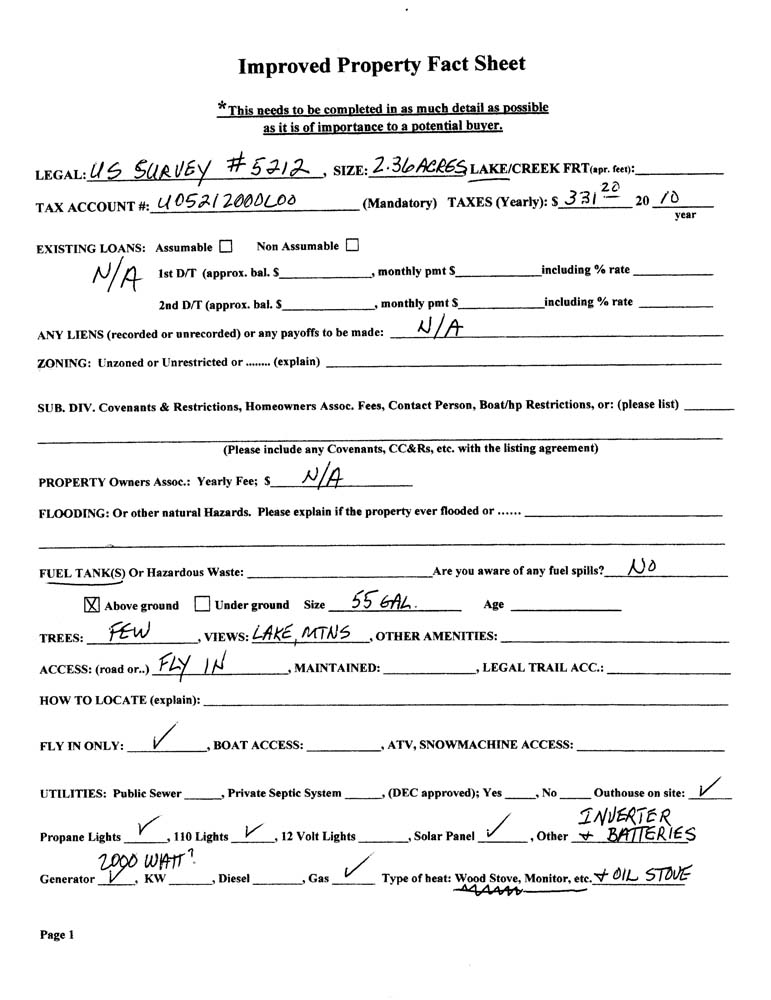 Improved Property Fact Sheet
*This needs to be completed in as much detail as possible
as it is of importance to a potential buyer.
LEGAL: US SURVEY #5212, SIZE: 2.36 ACRES LAKE/CREEK FRT(apr. feet):
TAX ACCOUNT #: U05212000L00 (Mandatory) TAXES (Yearly): $ 331 20 20 10
year
EXISTING LOANS: Assumable ☐ Non Assumable ☐
N/A 1st D/T (approx. bal. $, monthly pmt $ including % rate
2nd D/T (approx. bal. $, monthly pmt $ including % rate
ANY LIENS (recorded or unrecorded) or any payoffs to be made: N/A
ZONING: Unzoned or Unrestricted or ........ (explain)
SUB. DIV. Covenants & Restrictions, Homeowners Assoc. Fees, Contact Person, Boat/hp Restrictions, or: (please list)
(Please include any Covenants, CC&Rs, etc. with the listing agreement)
PROPERTY Owners Assoc.: Yearly Fee; $ N/A
FLOODING: Or other natural Hazards. Please explain if the property ever flooded or ......
FUEL TANK(S) Or Hazardous Waste: Are you aware of any fuel spills? NO
☒ Above ground ☐ Under ground Size 55 GAL. Age
TREES: FEW, VIEWS: LAKE, MTNS, OTHER AMENITIES:
ACCESS: (road or..) FLY IN, MAINTAINED:, LEGAL TRAIL ACC.:
HOW TO LOCATE (explain):
FLY IN ONLY: ✓, BOAT ACCESS:, ATV, SNOWMACHINE ACCESS:
UTILITIES: Public Sewer, Private Septic System, (DEC approved); Yes, No Outhouse on site: ✓
INVERTER
Propane Lights ✓, 110 Lights ✓, 12 Volt Lights, Solar Panel ✓, Other + BATTERIES
2000 WATT?
Generator ✓, KW, Diesel, Gas ✓ Type of heat: Wood Stove, Monitor, etc. + OIL STOVE
Page 1